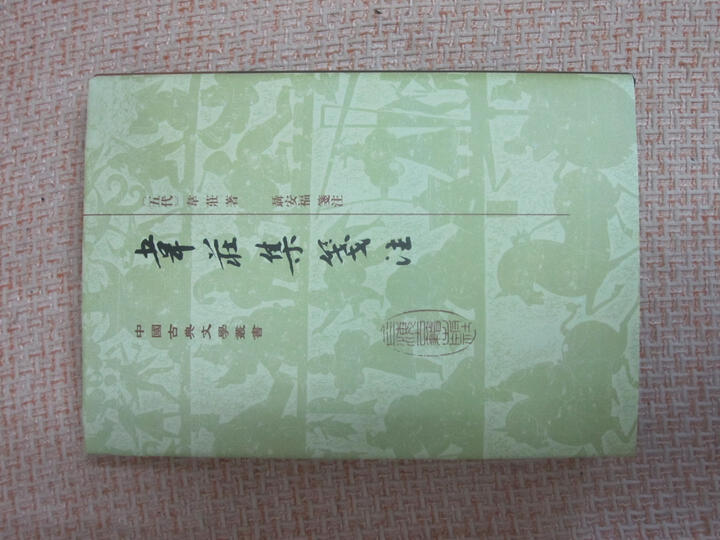 〔五代〕韋莊著 聶安福箋注
韋莊集箋注
中國古典文學叢書
上海古籍出版社